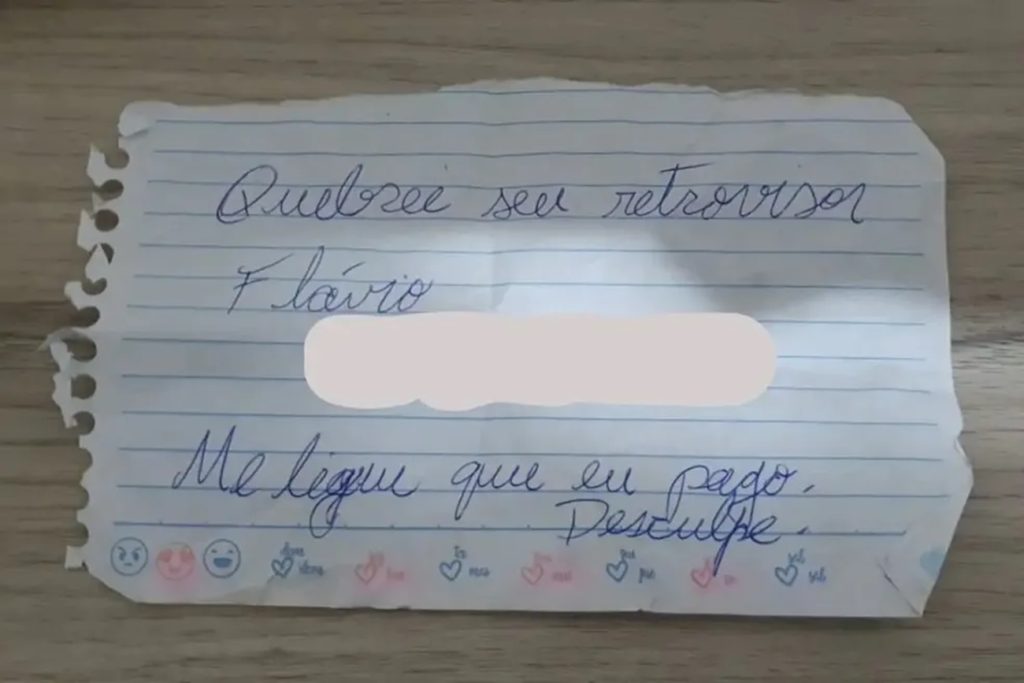 Quebrei seu retrovisor
Flávio
Me ligue que eu pago.
Desculpe.